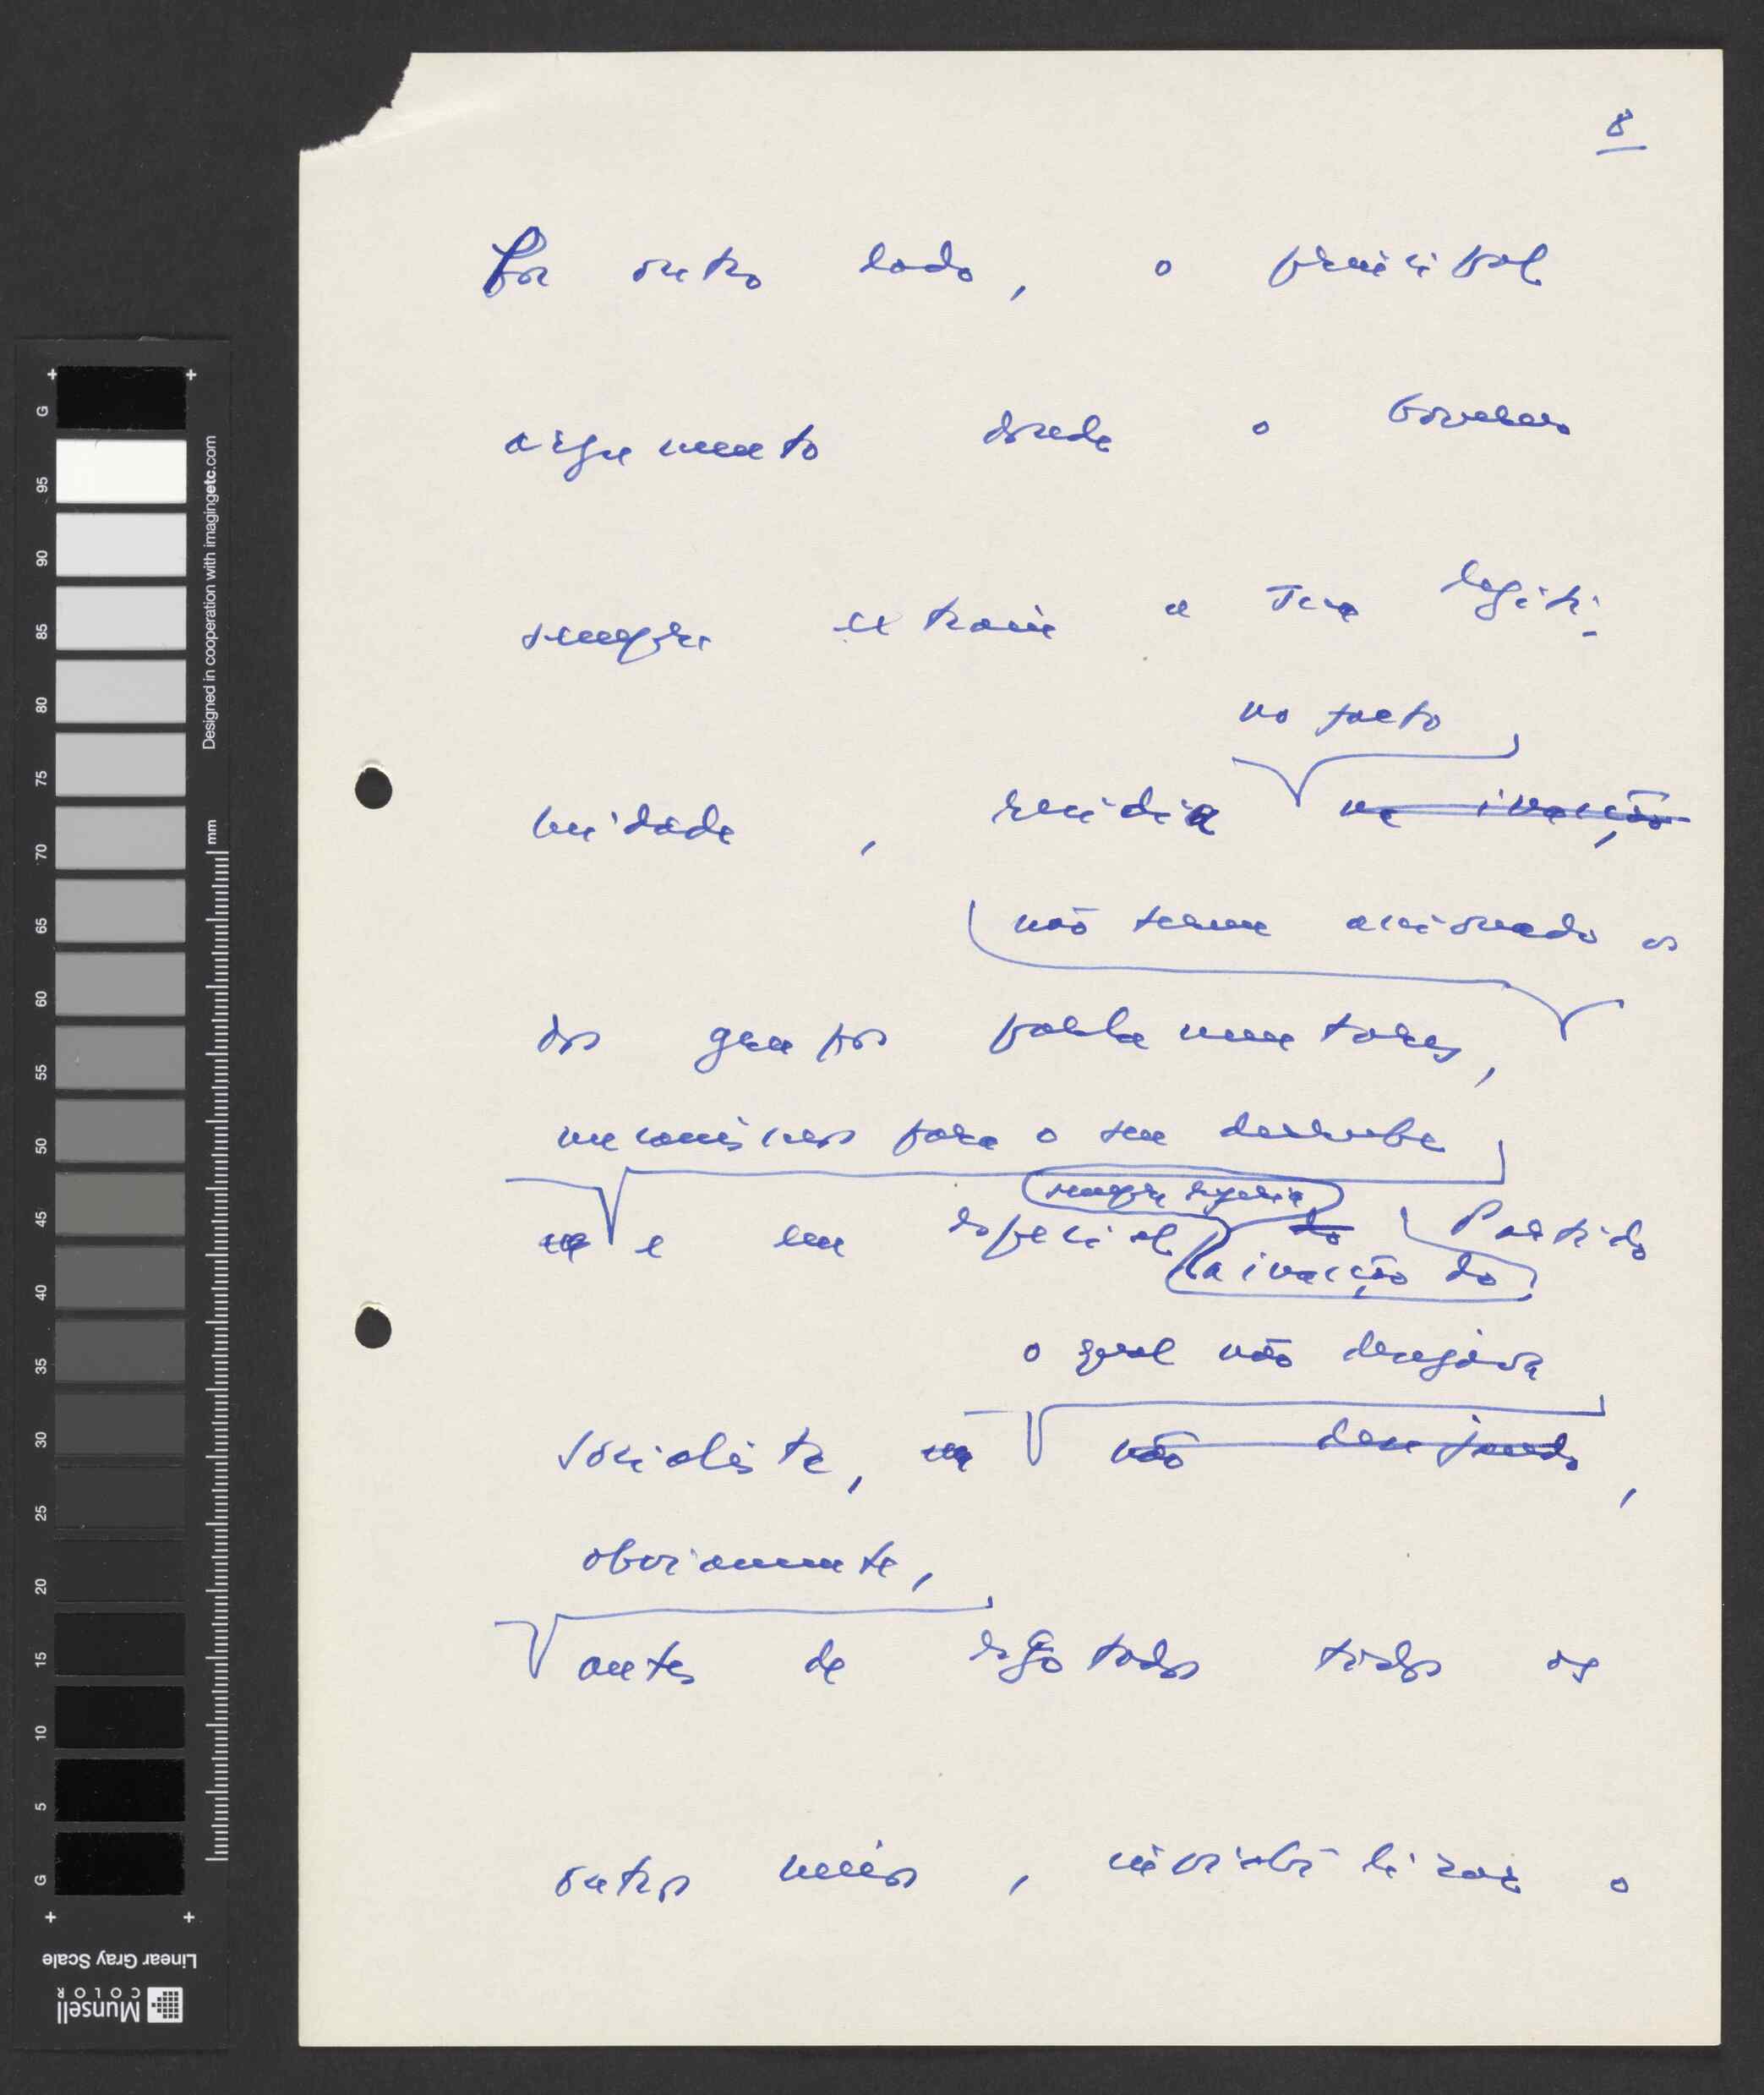 8
Por outro lado, o principal
argumento donde o Governo
sempre extraiu a sua legiti-
no facto
midade, residia na inacção
não terem accionado os
dos grupos parlamentares,
mecanismos para o seu derrube
e em especial do Partido
sempre
a inacção do
o qual não desejava
Socialista, não desejando,
obviamente,
antes de esgotados todos os
outros meios, inviabilizar o
G 95 90 85 80 75 70 65 60 55 50 45 40 35 30 25 20 15 10 5 G
Designed in cooperation with imagingetc.com
mm
Linear Gray Scale
Munsell
COLOR